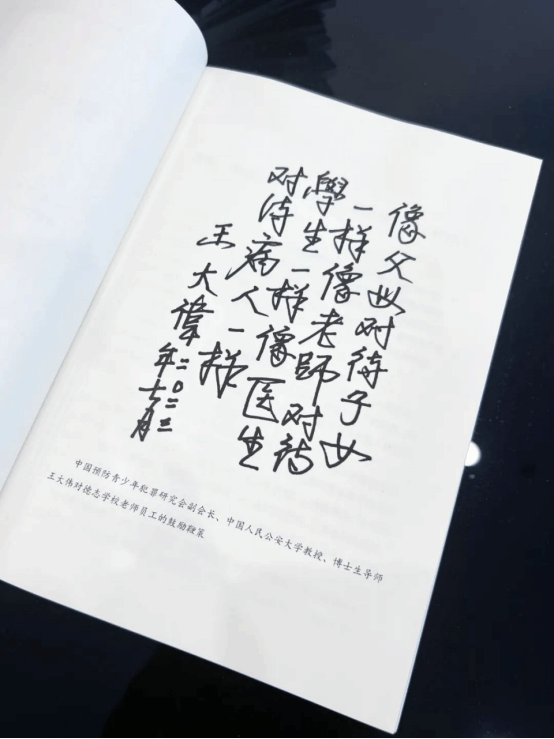 像父母对待子女
一样像老師对待
學生一样像医生
对待病人一样
王大偉
二〇二三
年七月
中国预防青少年犯罪研究会副会长、中国人民公安大学教授、博士生导师
王大伟对德志学校老师员工的鼓励鞭策